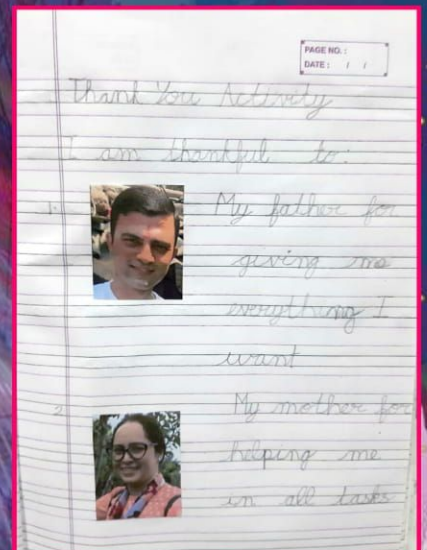 PAGE NO.:
DATE: / /
Thank You Activity
I am thankful to:
1. My father for
giving me
everything I
want
2. My mother for
helping me
in all tasks